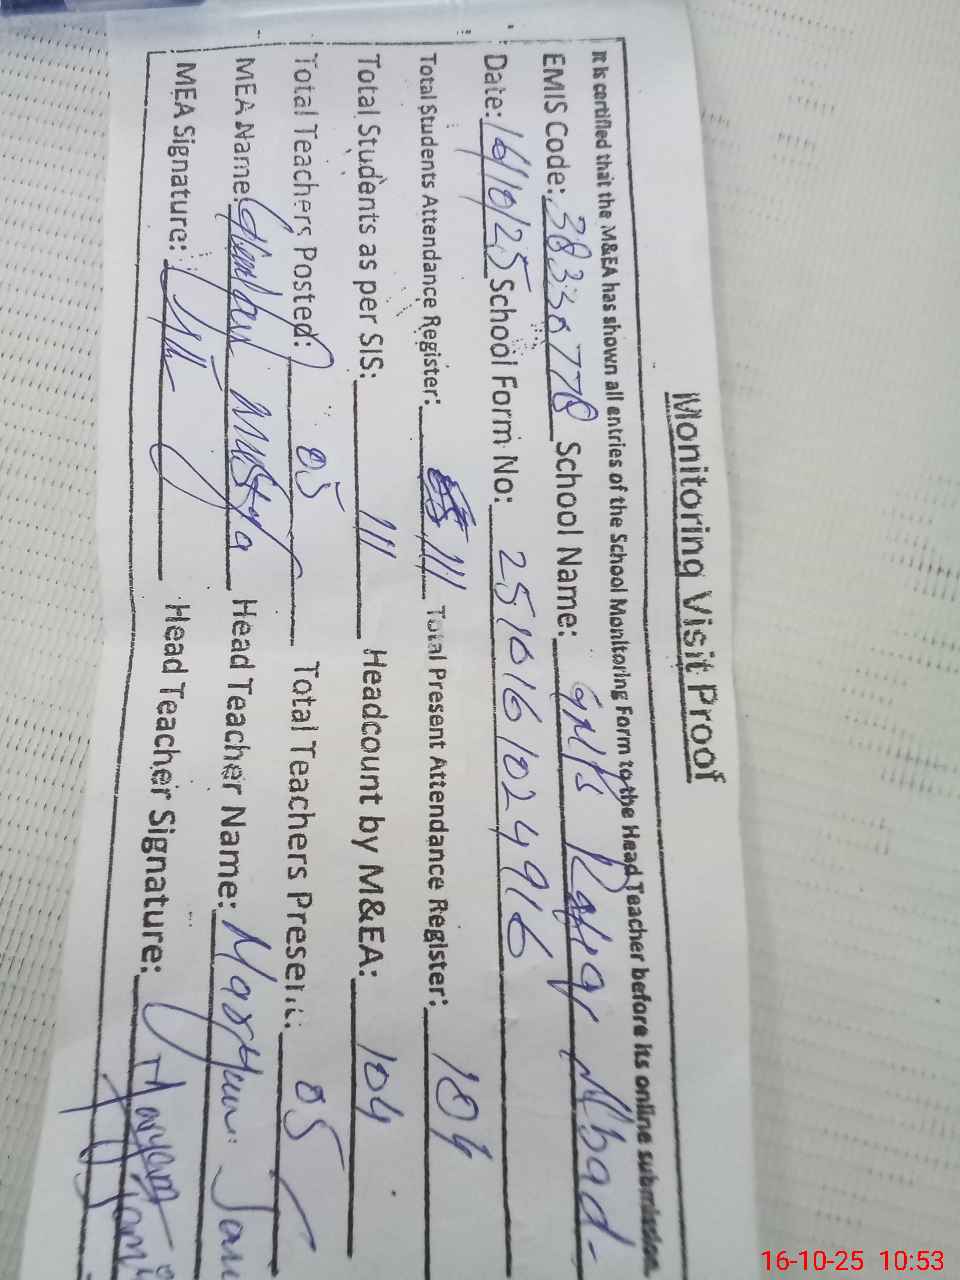 Monitoring Visit Proof
It is certified that the M&EA has shown all entries of the School Monitoring Form to the Head Teacher before its online submission.
EMIS Code: 38330778 School Name: GMPS Abad-
Date: 16/10/25 School Form No: 2510161024916
Total Students Attendance Register: 111 Total Present Attendance Register: 104
Total Students as per SIS: 111 Headcount by M&EA: 104
Total Teachers Posted: 05 Total Teachers Present: 05
MEA Name: Ghulam Mustafa Head Teacher Name: Maryam Jami
MEA Signature: Head Teacher Signature: Maryam Jami
16-10-25 10:53